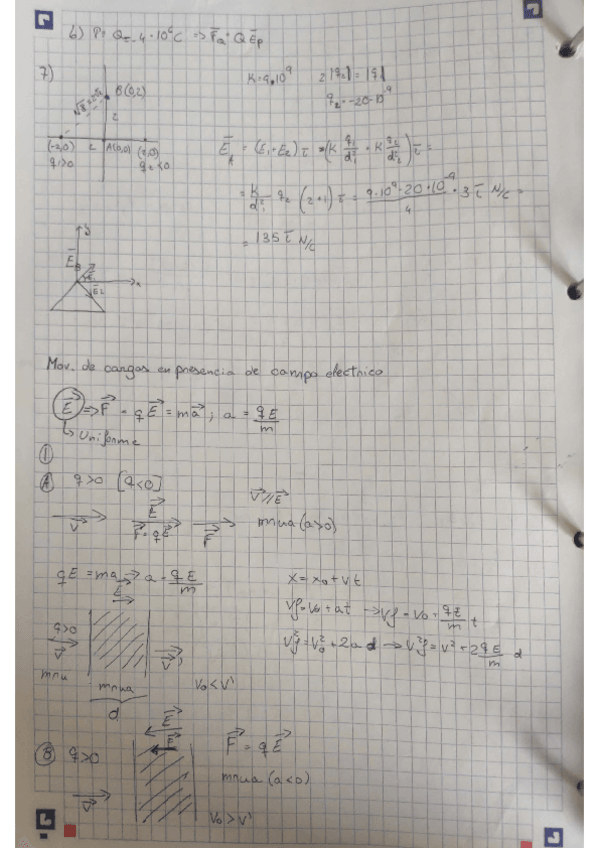 6) P= Q=-4·10⁶C => F⃗Q = Q E⃗p
7)
K=9·10⁹ 2|q₂|=|q₁|
q₂=-20·10⁻⁹
√8=2√2
B(0,2)
2
(-2,0) 2 A(0,0) (2,0)
q₁>0 q₂<0
E⃗A = (E₁+E₂) i⃗ = (K q₁/d₁² + K q₂/d₂²) i⃗ =
= K/d₁² q₂ (2+1) i⃗ = 9·10⁹·20·10⁻⁹/4 · 3 i⃗ N/C =
= 135 i⃗ N/C
y
E⃗B
E⃗₁
x
E⃗₂
Mov. de cargas en presencia de campo electrico
E⃗ => F⃗ = qE⃗ = ma⃗ ; a = qE/m
↳ Uniforme
①
Ⓐ q>0 [q<0]
V⃗ // E⃗
V⃗ E⃗ F⃗=qE⃗ F⃗ mrua (a>0)
qE = ma → a = qE/m
x = x₀ + vt
Vf = V₀ + at → Vf = V₀ + qE/m t
Vf² = V₀² + 2ad → Vf² = V² + 2 qE/m d
E⃗
q>0
V⃗ V⃗'
mru mrua V₀<V'
d
E⃗
F⃗
Ⓑ q>0 F⃗ = qE⃗
mrua (a<0)
V⃗
V₀>V'